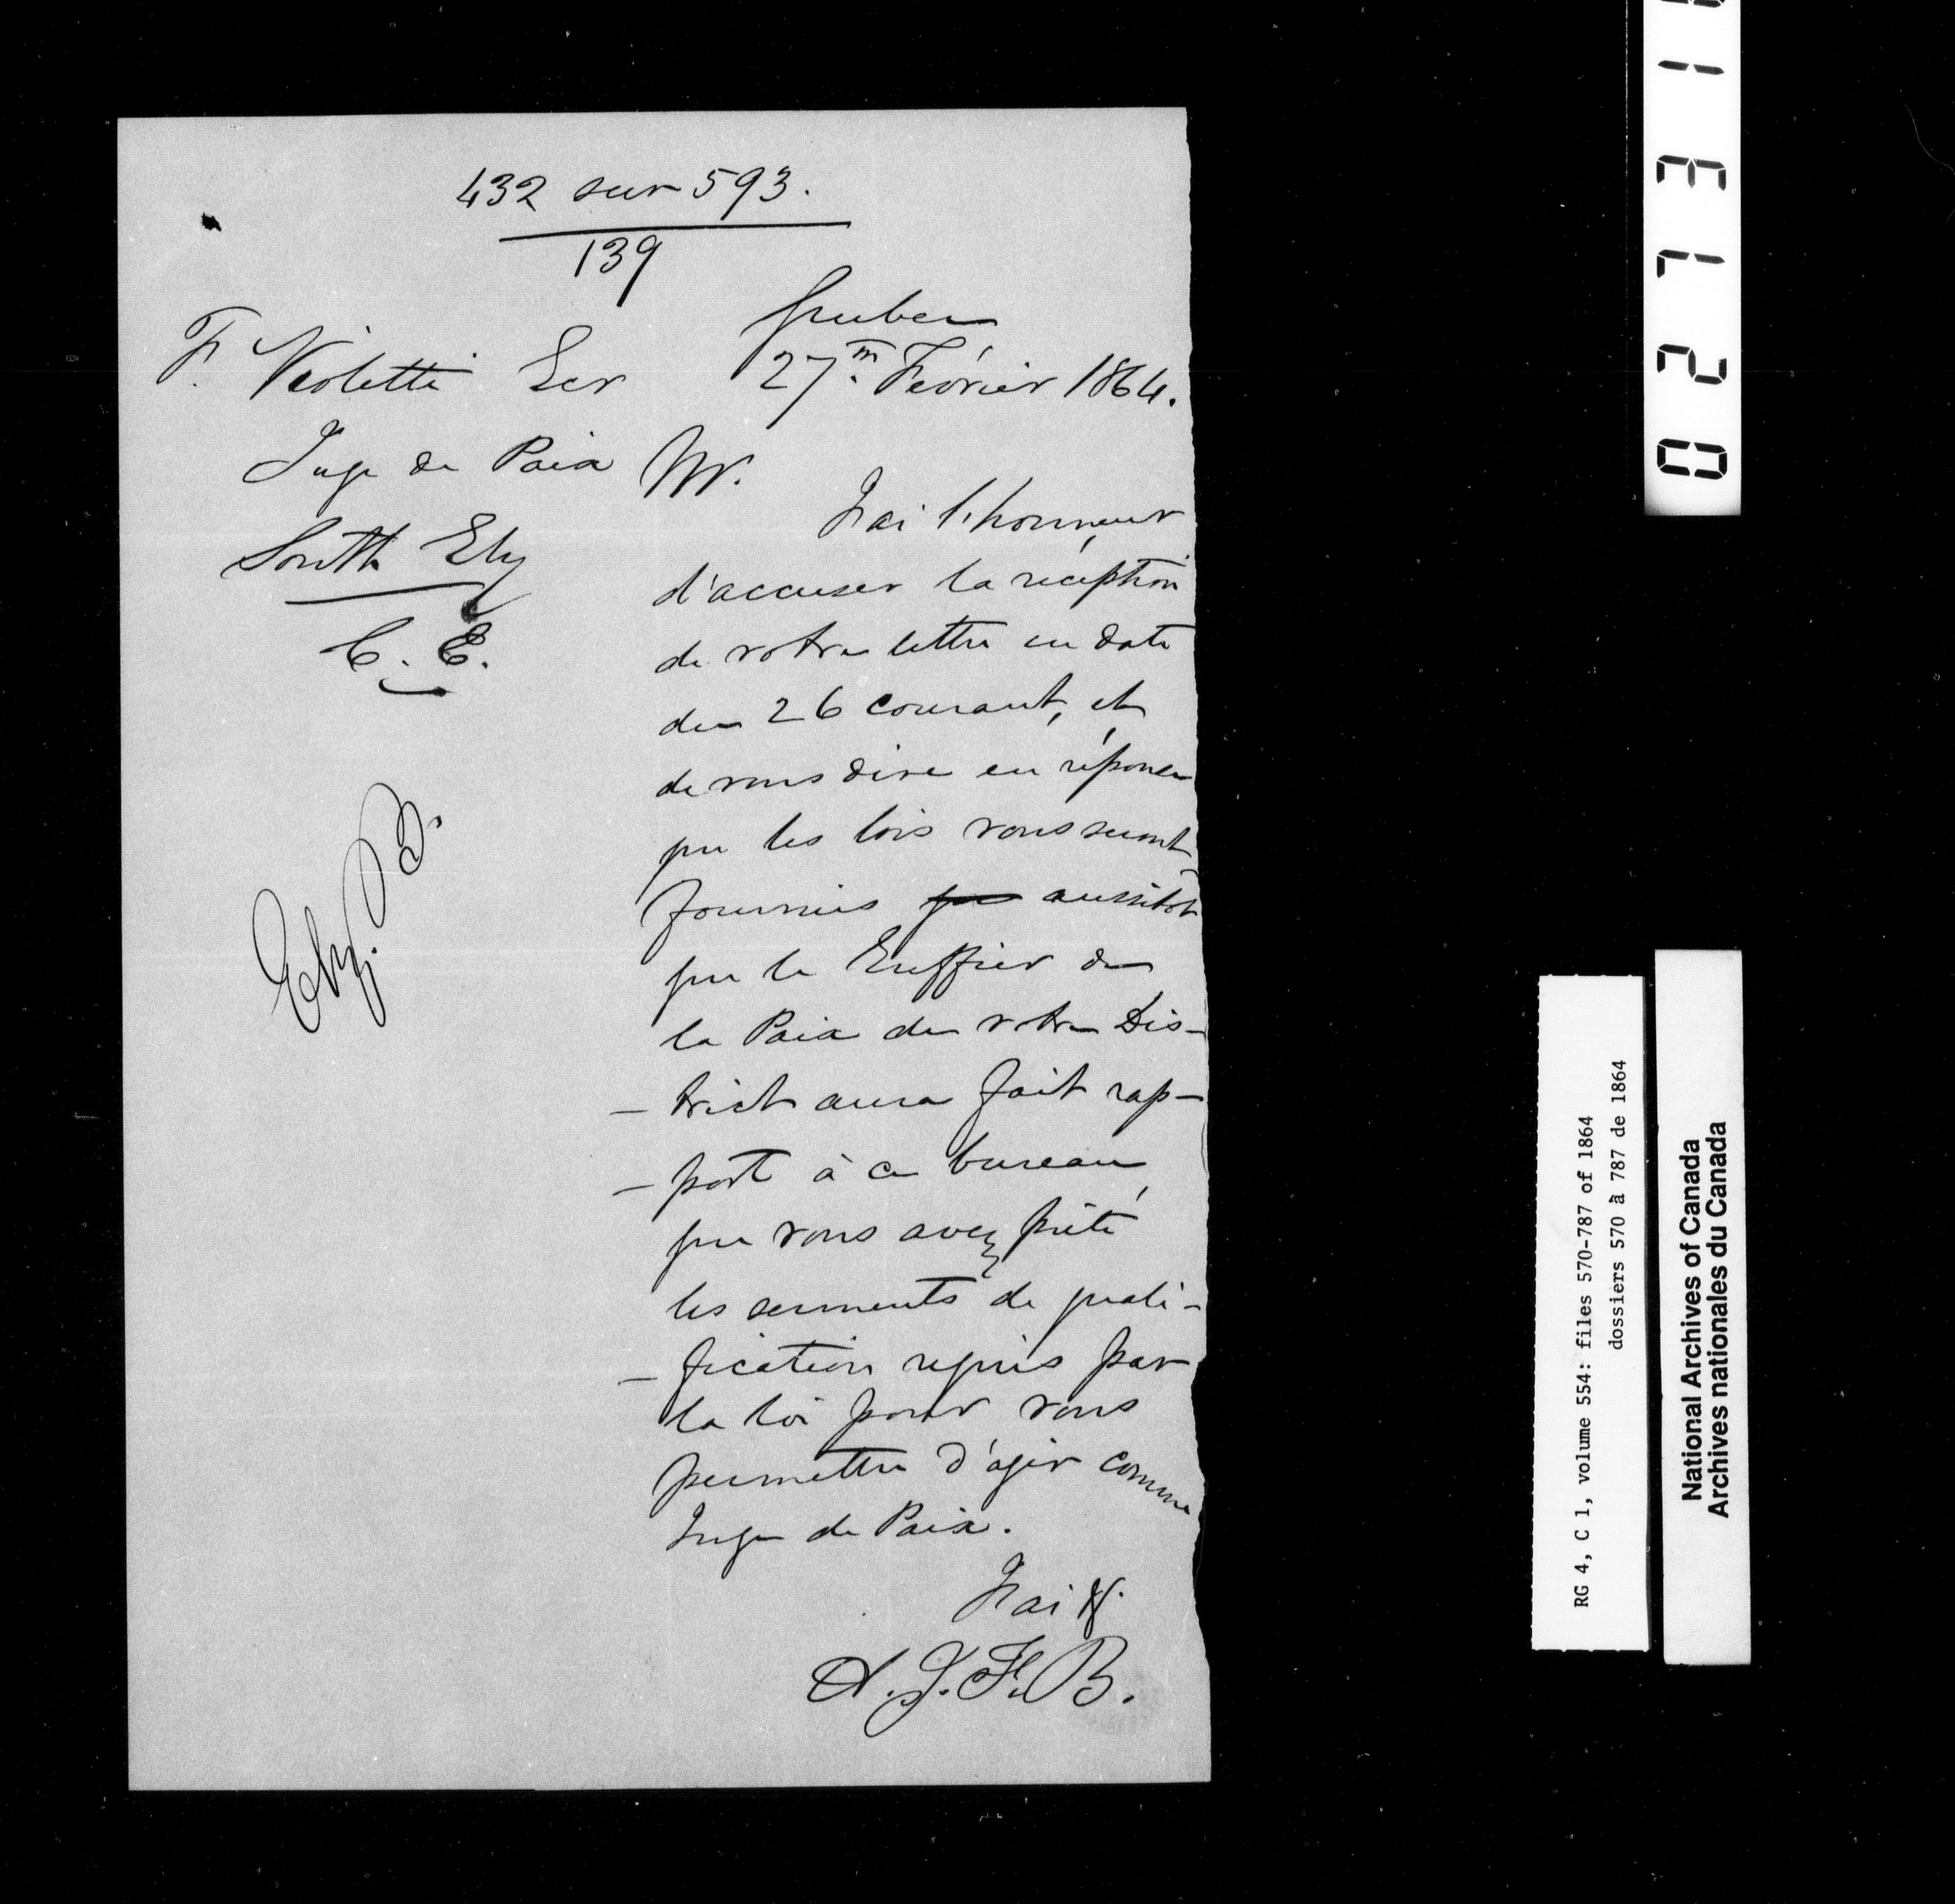 432 sur 593.
139
Quebec
27.m Février 1864.
F. Violetti Ecr
Juge de Paix
South Ely
C. E.
Mr.
J'ai l'honneur
d'accuser la réception
de votre lettre en date
du 26 courant, et
de vous dire en réponse
que les lois vous seront
fournies que aussitôt
que le Greffier de
la Paix de votre Dis-
-trict aura fait rap-
-port à ce bureau
que vous avez prêté
les serments de quali-
-fication requis par
la loi pour vous
permettre d'agir comme
Juge de Paix.
J'ai &.
A. J. F. B.
0 2 7 3 1
RG 4, C 1, volume 554: files 570-787 of 1864
dossiers 570 à 787 de 1864
National Archives of Canada
Archives nationales du Canada